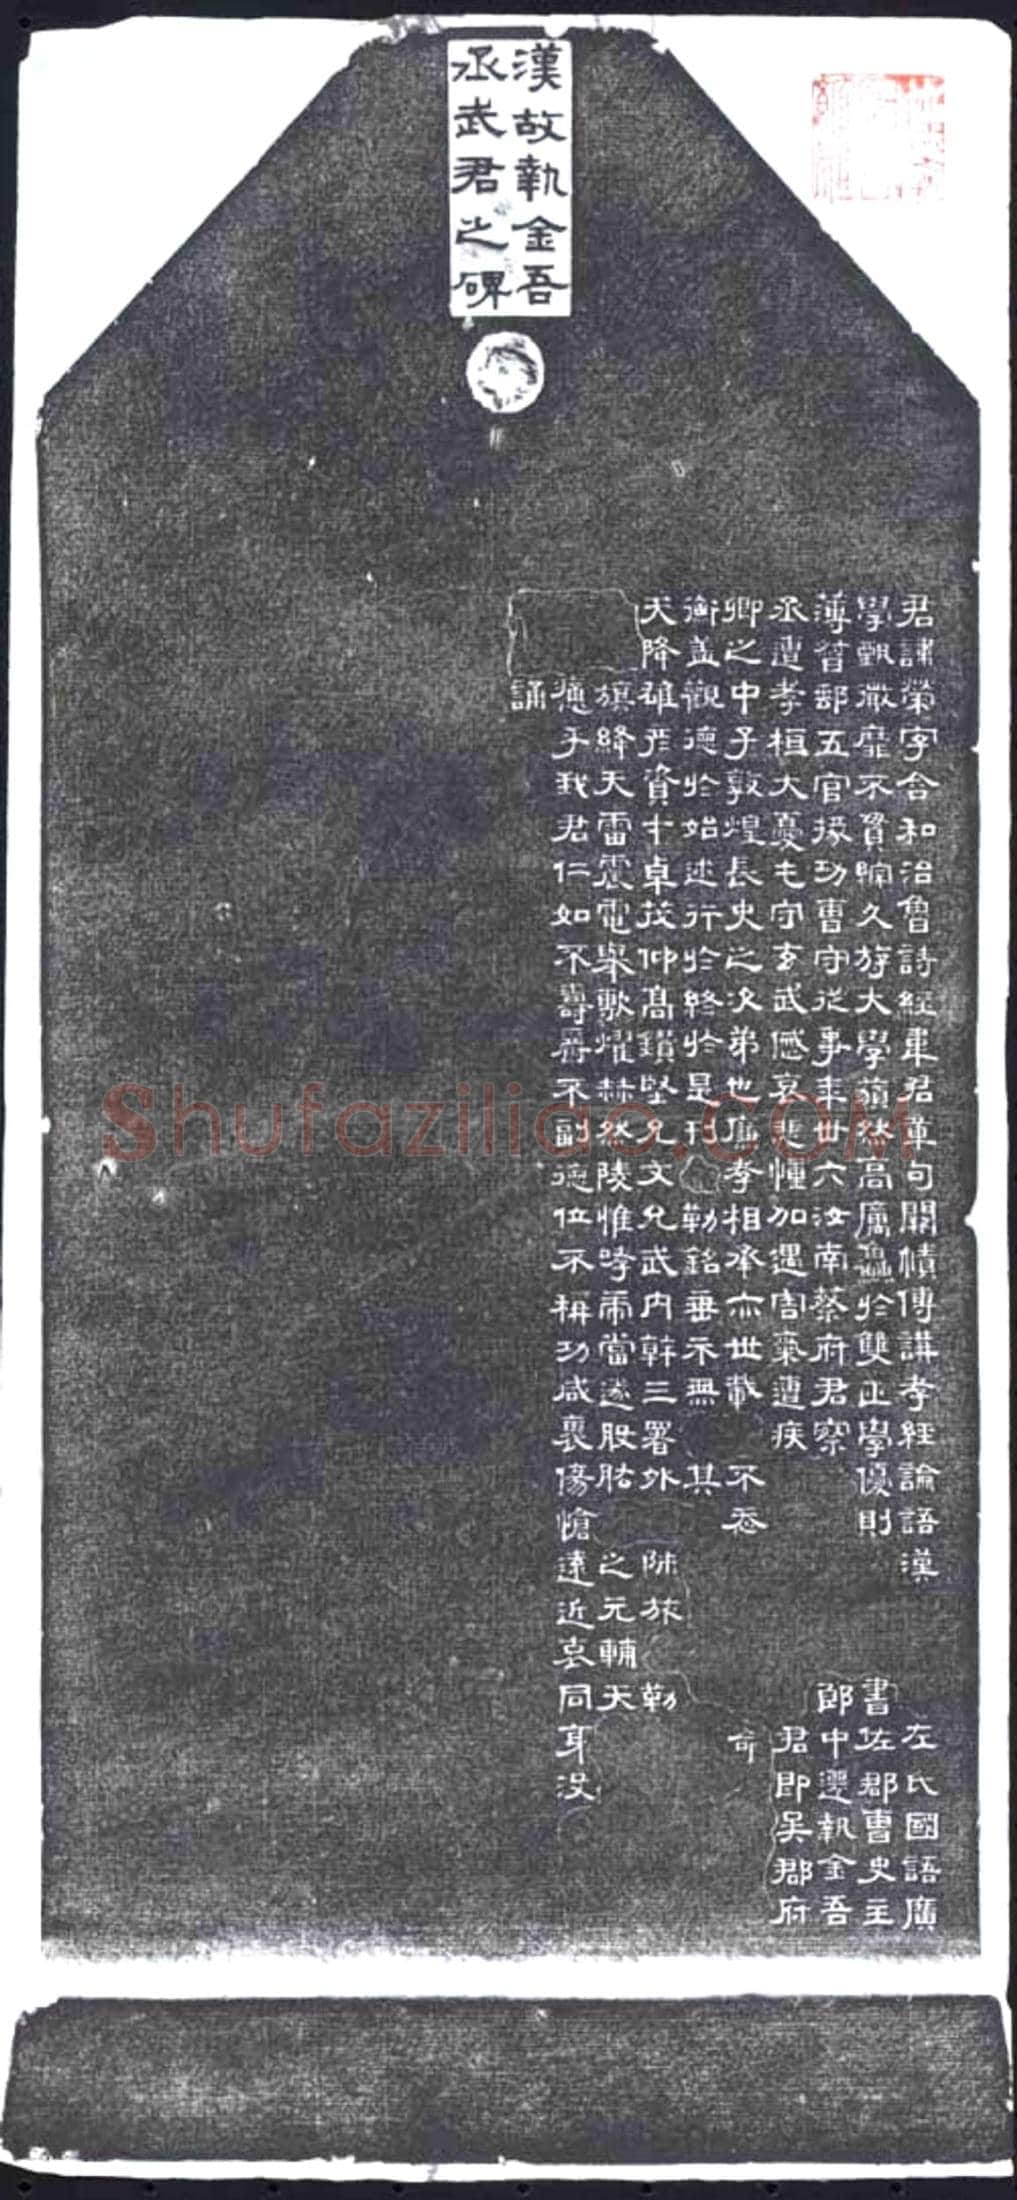 漢故執金吾
丞武君之碑
君諱榮字含和治魯詩經韋君章句闕幘傳講孝經論語漢 左氏國語廣
學甄微靡不貫綜久斿大學藐然高厲鱻於雙匹學優則 書佐郡曹史主
薄督郵五官掾功曹守從事年卅六汝南蔡府君察 郎中遷執金吾
丞遭孝桓大憂屯守玄武慼哀悲慟加遇害氣遭疾 君即吳郡府
卿之中子敦煌長史之次弟也廉孝相承亦世載 不忝 奇
衡蓋觀德於始述行於終於是刊 勒銘垂示無 其
天降雄彥資才卓茂仰高鑽堅允文允武內幹三署外 師旅 勒
旗絳天雷震電舉敷燿赫然陵惟哮虎當遂股肱 之元輔天
德于我君仁如不壽爵不副德位不稱功咸襃傷愴遠近哀同身没
誦
Shufaziliao.COM